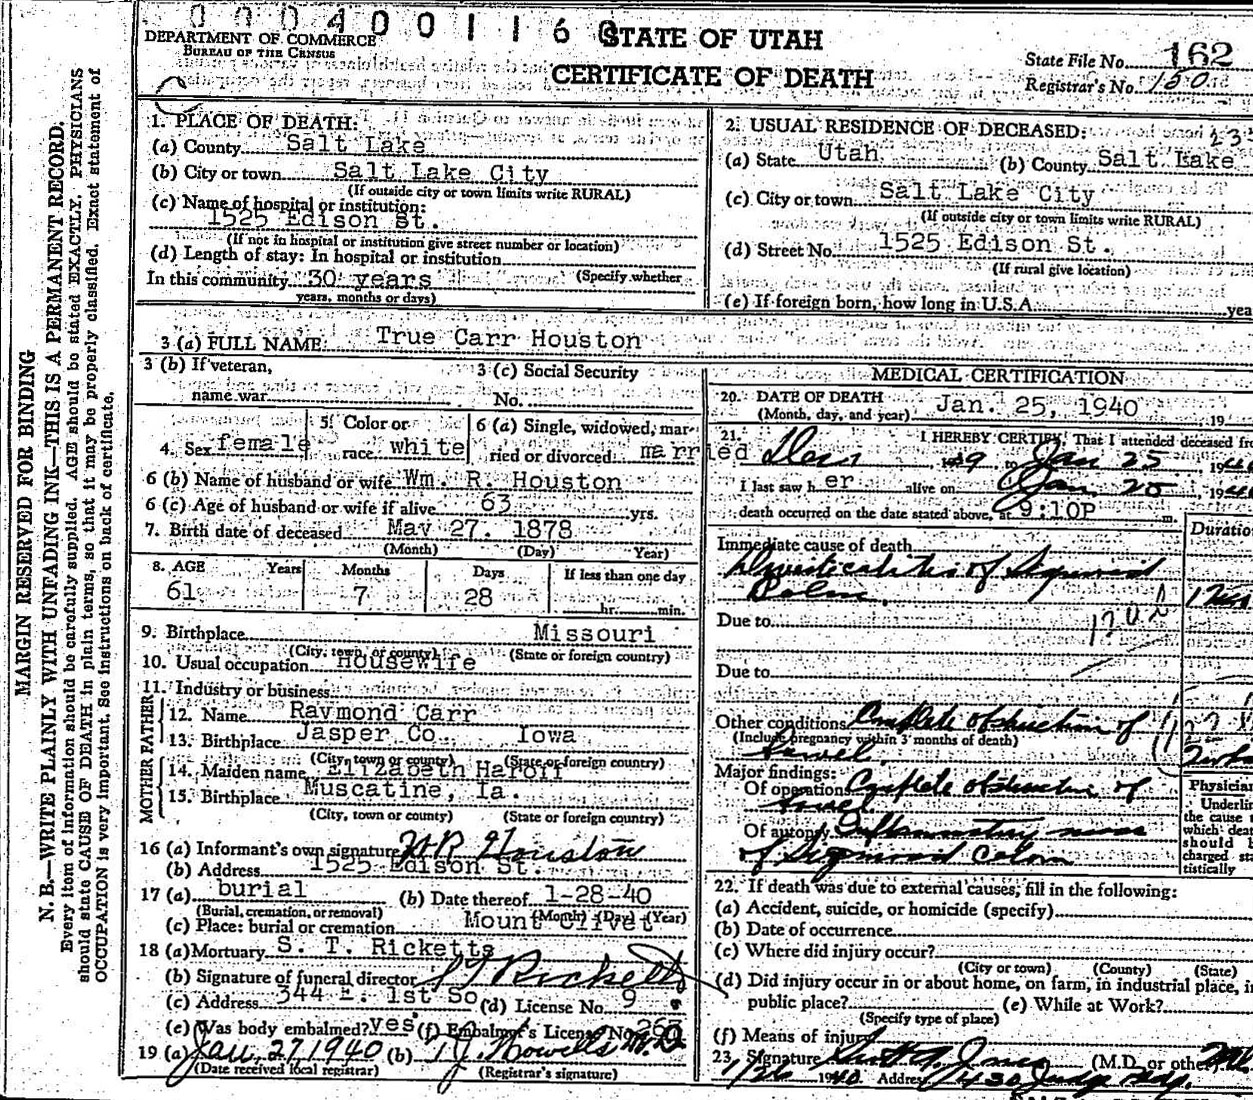 0 0 0 4 0 0 1 1 6
DEPARTMENT OF COMMERCE
BUREAU OF THE CENSUS
STATE OF UTAH
CERTIFICATE OF DEATH
State File No. 162
Registrar's No. 150
MARGIN RESERVED FOR BINDING
N. B.—WRITE PLAINLY WITH UNFADING INK—THIS IS A PERMANENT RECORD.
Every item of information should be carefully supplied. AGE should be stated EXACTLY. PHYSICIANS
should state CAUSE OF DEATH in plain terms, so that it may be properly classified. Exact statement of
OCCUPATION is very important. See instructions on back of certificate.
1. PLACE OF DEATH:
(a) County Salt Lake
(b) City or town Salt Lake City
(If outside city or town limits write RURAL)
(c) Name of hospital or institution:
1525 Edison St.
(If not in hospital or institution give street number or location)
(d) Length of stay: In hospital or institution
(Specify whether
In this community 30 years
years, months or days)
2. USUAL RESIDENCE OF DECEASED:
(a) State Utah (b) County Salt Lake
(c) City or town Salt Lake City
(If outside city or town limits write RURAL)
(d) Street No. 1525 Edison St.
(If rural give location)
(e) If foreign born, how long in U.S.A. yea
3 (a) FULL NAME: True Carr Houston
3 (b) If veteran,
name war
3 (c) Social Security
No.
4. Sex female
5. Color or
race white
6 (a) Single, widowed, mar-
ried or divorced married
6 (b) Name of husband or wife Wm. R. Houston
6 (c) Age of husband or wife if alive 63 yrs.
7. Birth date of deceased May 27. 1878
(Month) (Day) Year)
8. AGE Years Months Days If less than one day
61 7 28 hr. min.
9. Birthplace Missouri
(City, town, or county) (State or foreign country)
10. Usual occupation Housewife
11. Industry or business
FATHER
12. Name Raymond Carr
13. Birthplace Jasper Co. Iowa
(City, town or county) (State or foreign country)
MOTHER
14. Maiden name Elizabeth Haroff
15. Birthplace Muscatine, Ia.
(City, town or county) (State or foreign country)
16 (a) Informant's own signature W R Houston
(b) Address 1525 Edison St.
17 (a) burial (b) Date thereof 1-28-40
(Burial, cremation, or removal) (Month) (Day) (Year)
(c) Place: burial or cremation Mount Olivet
18 (a) Mortuary S. T. Ricketts
(b) Signature of funeral director S T Ricketts
(c) Address 344 E. 1st So. (d) License No. 9
(e) Was body embalmed? Yes (f) Embalmer's License No.
19 (a) Jan. 27, 1940 (b) T. J. Howells M.D.
(Date received local registrar) (Registrar's signature)
MEDICAL CERTIFICATION
20. DATE OF DEATH
(Month, day, and year) Jan. 25, 1940 19
21. I HEREBY CERTIFY, That I attended deceased from
Dec 1939 to Jan 25, 1940
I last saw her alive on Jan. 25, 1940
death occurred on the date stated above, at 9:10P m.
Duratio
Immediate cause of death
Diverticulitis of Sigmoid
Colon
Due to
Due to
Other conditions Complete obstruction of
(Include pregnancy within 3 months of death)
bowel.
Major findings:
Of operations Complete obstruction of
bowel
Of autopsy Inflammatory mass
of Sigmoid Colon
Physician
Underlin
the cause t
which deat
should b
charged sta
tistically
22. If death was due to external causes, fill in the following:
(a) Accident, suicide, or homicide (specify)
(b) Date of occurrence
(c) Where did injury occur?
(City or town) (County) (State)
(d) Did injury occur in or about home, on farm, in industrial place, in
public place? (e) While at Work?
(Specify type of place)
(f) Means of injury
23. Signature (M.D. or other)
1/26 1940 Address 430 Judge Bldg.